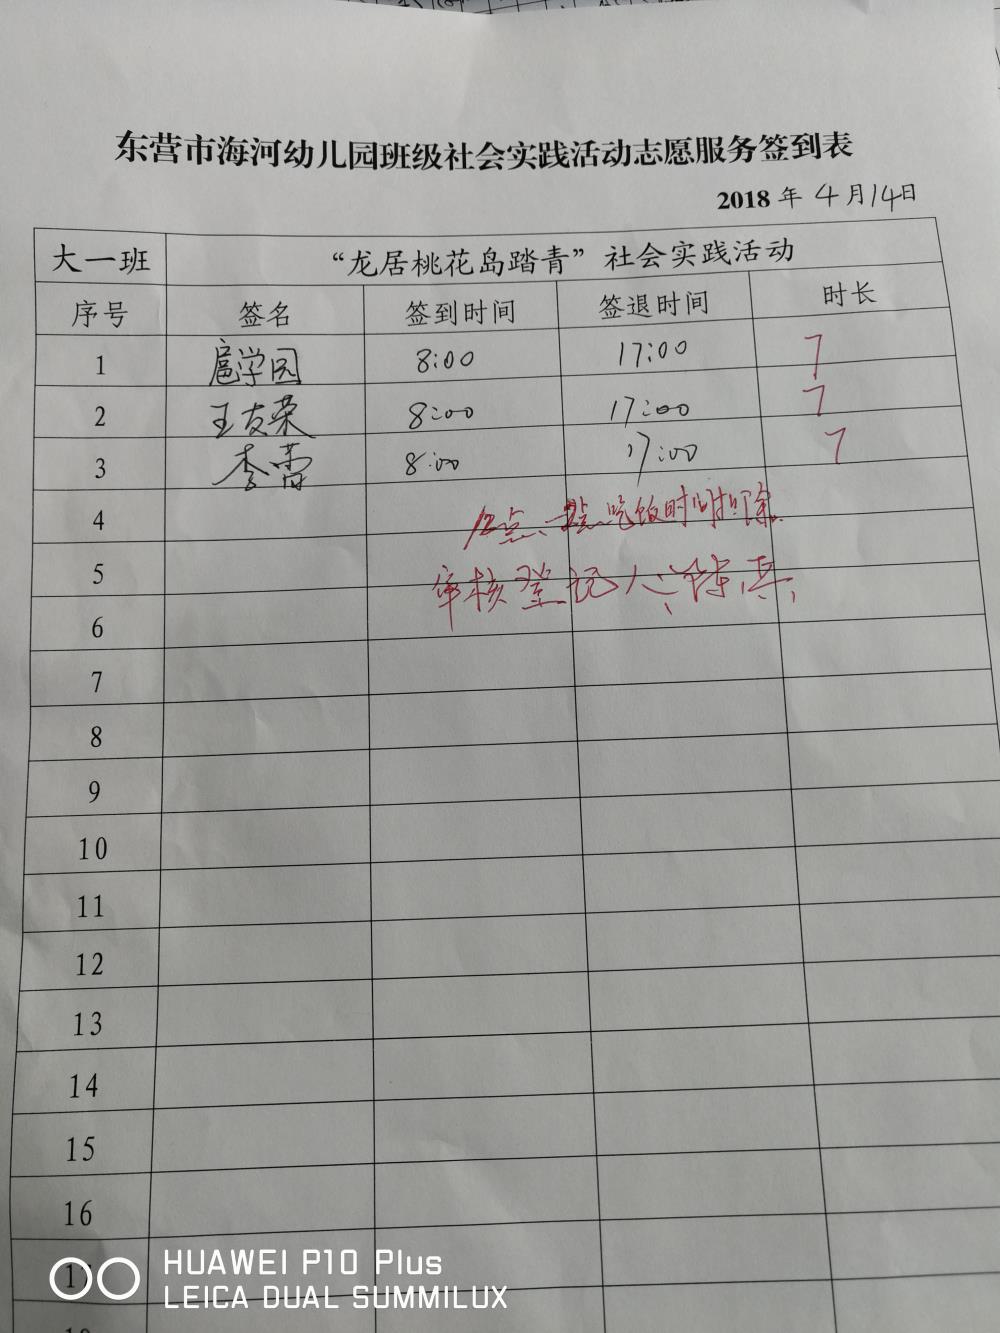 东营市海河幼儿园班级社会实践活动志愿服务签到表
2018 年 4 月 14 日
大一班 “龙居桃花岛踏青”社会实践活动
序号 签名 签到时间 签退时间 时长
1 扈学园 8:00 17:00 7
2 王友荣 8:00 17:00 7
3 李蕾 8:00 17:00 7
4 12点、吃饭时间扣除
5 审核登记人
6
7
8
9
10
11
12
13
14
15
16
17
HUAWEI P10 Plus
LEICA DUAL SUMMILUX